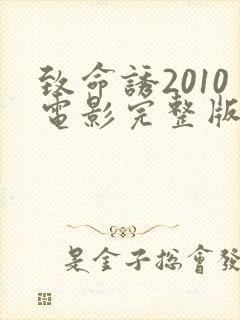 致命誘2010
電影完整版
是金子总會發